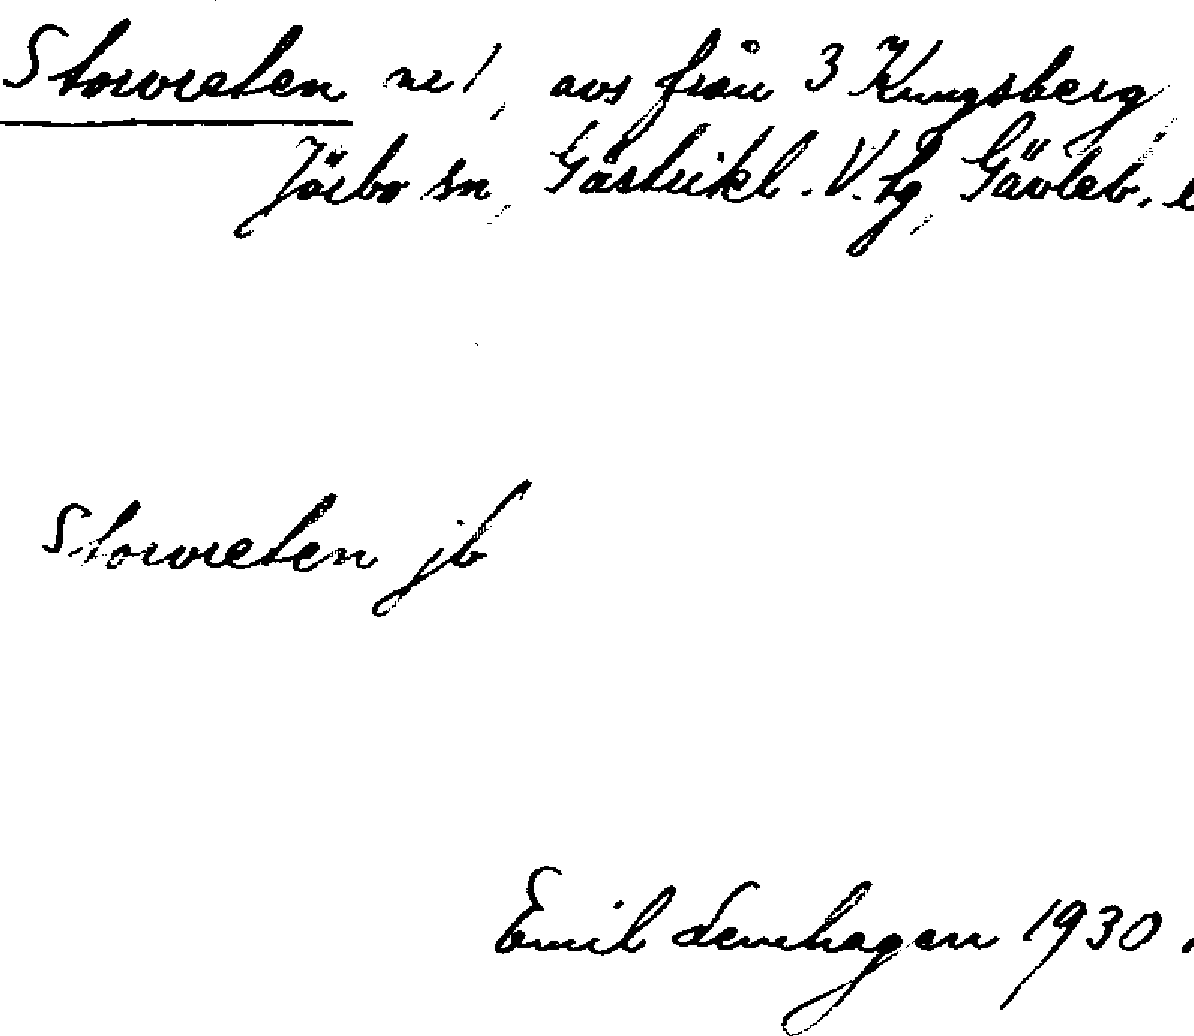 Storvreten nr 1, avs från 3 Kungsberg,
Järbo sn, Gästrikl. V. tg, Gävleb. l
Storvreten jb
Emil Lenhagen 1930.